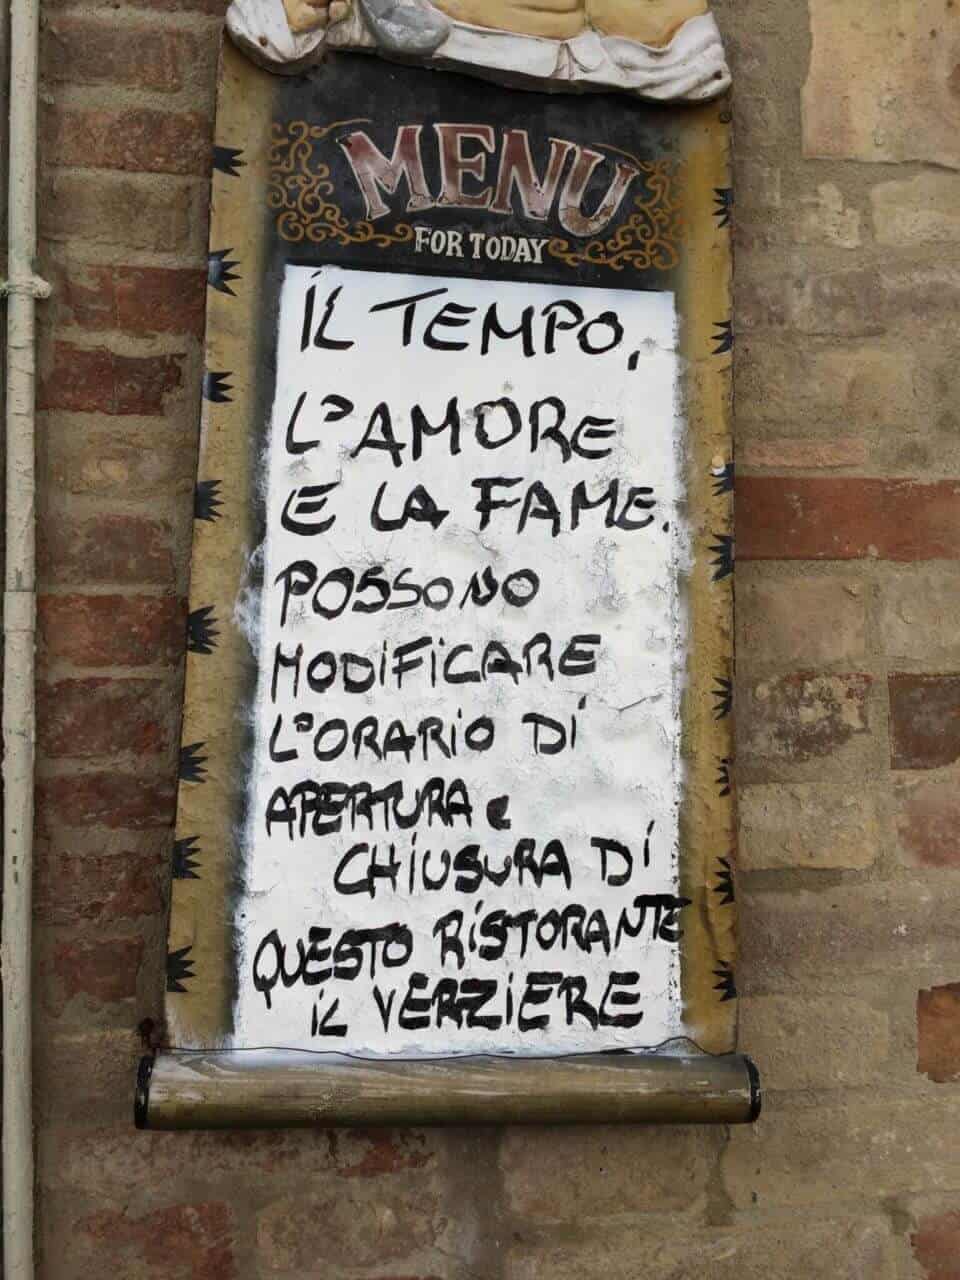 MENU
FOR TODAY
IL TEMPO,
L'AMORE
E LA FAME.
POSSONO
MODIFICARE
L'ORARIO DI
APERTURA e
CHIUSURA DI
QUESTO RISTORANTE
IL VERZIERE